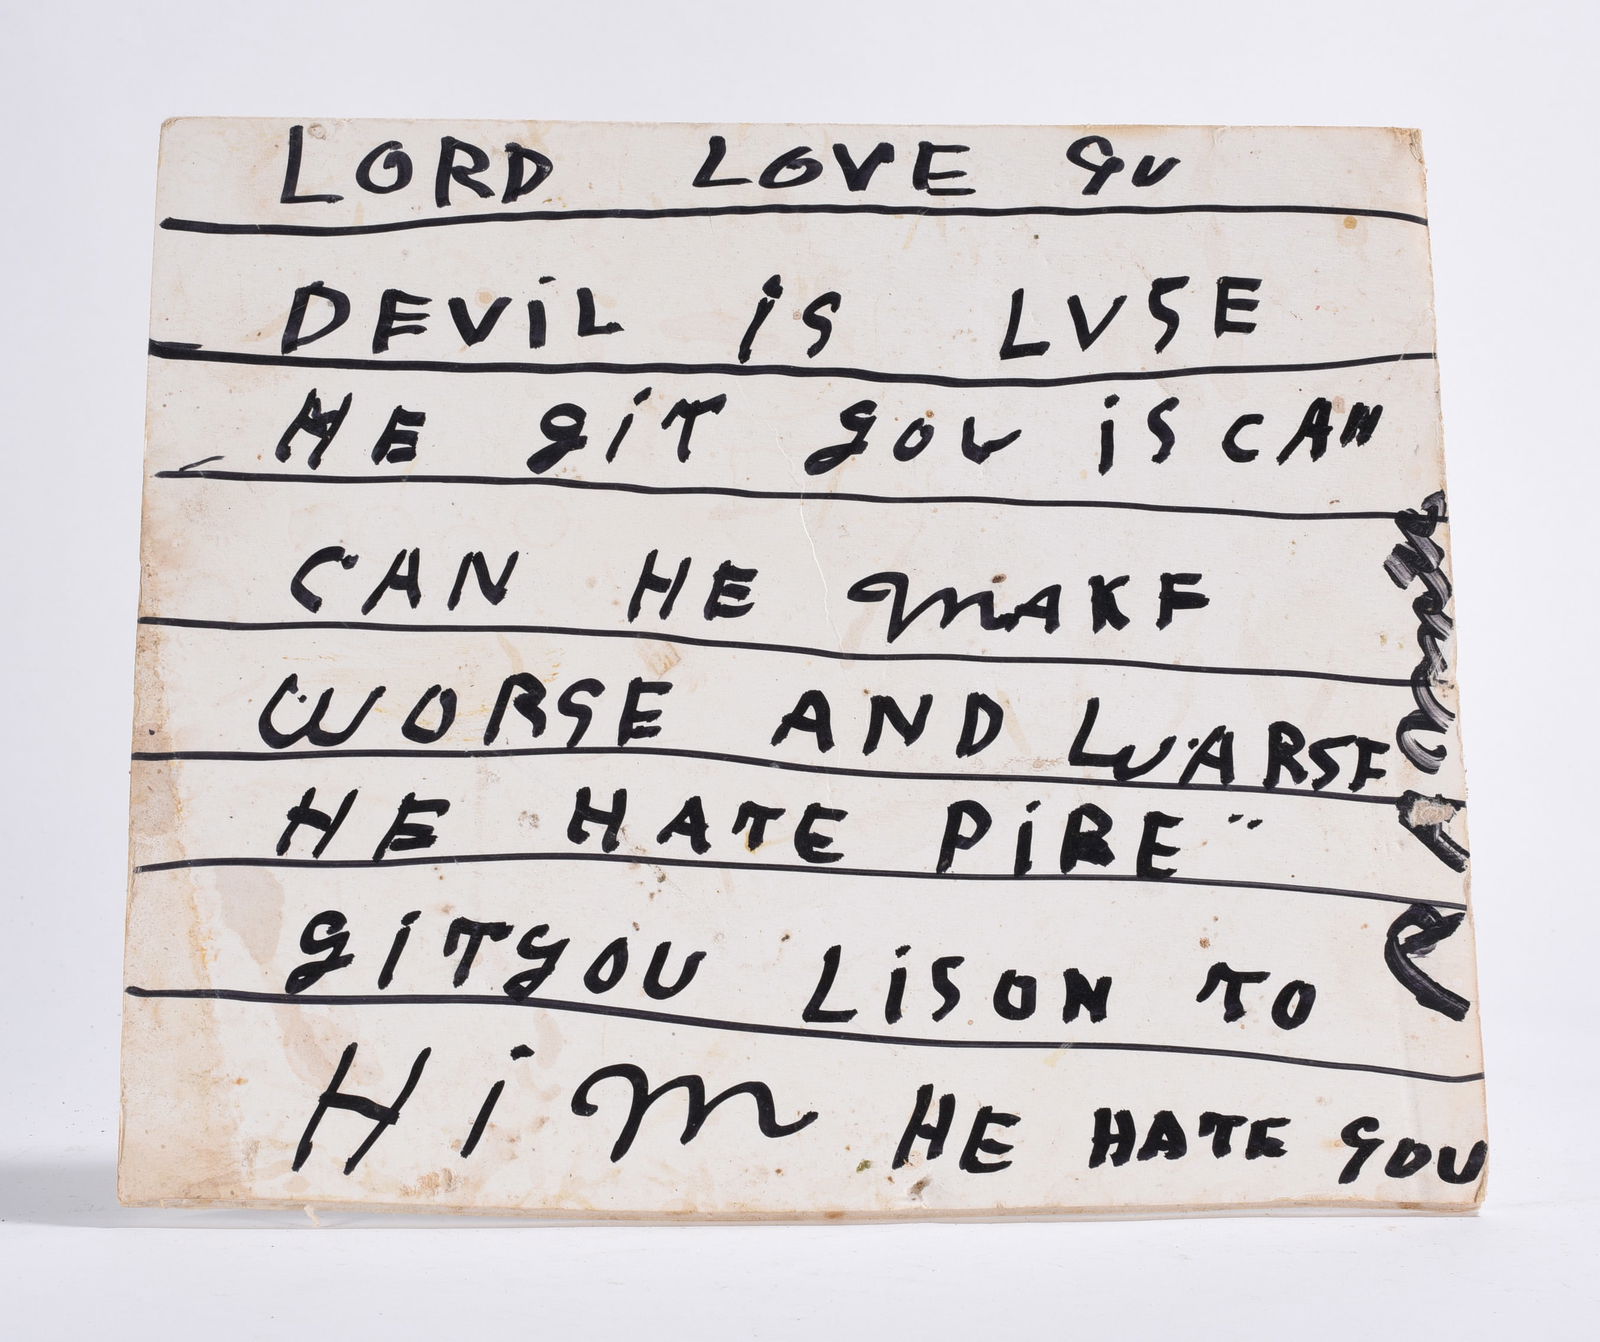 LORD LOVE YU
DEVIL IS LUSE
HE GIT YOU IS CAN
CAN HE MAKE
WORSE AND WARSE
HE HATE PIBE"
GIT YOU LISON TO
HIM HE HATE YOU